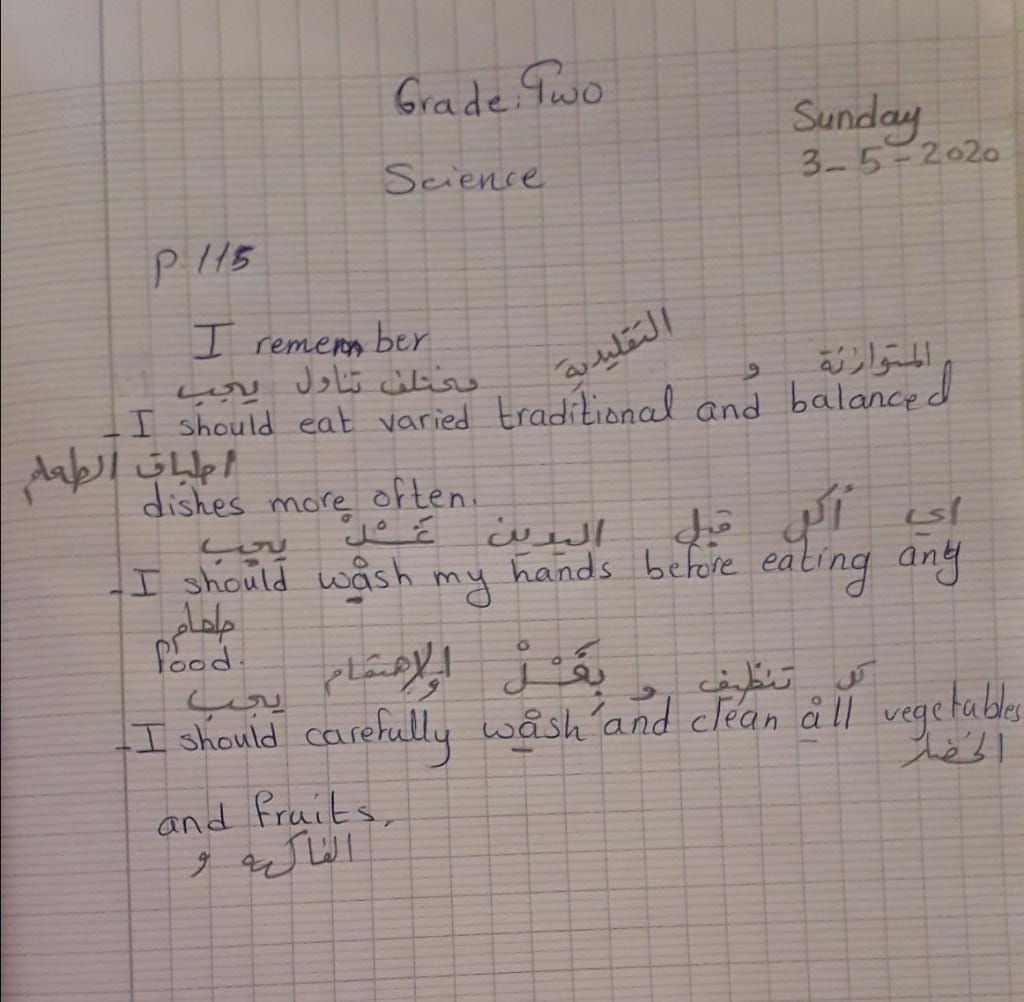 Grade: Two
Sunday
3-5-2020
Science
P 115
I remember
التقليدية
يجب تناول مختلف و المتوازنة
- I should eat varied traditional and balanced
اطباق الطعام
dishes more often.
يجب غَسْلْ اليدين قبل أكل اي
- I should wash my hands before eating any
طعام
food.
يجب
و تنظيف كل
- I should carefully wash and clean all vegetables
الخضار
and fruits.
و الفاكهة